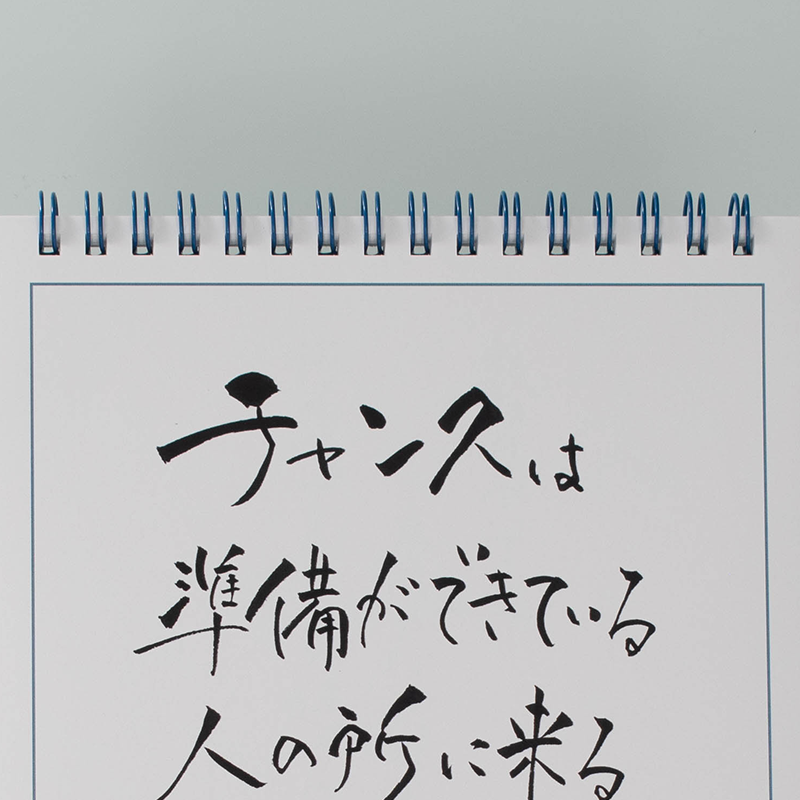 チャンスは
準備ができている
人の所に来る